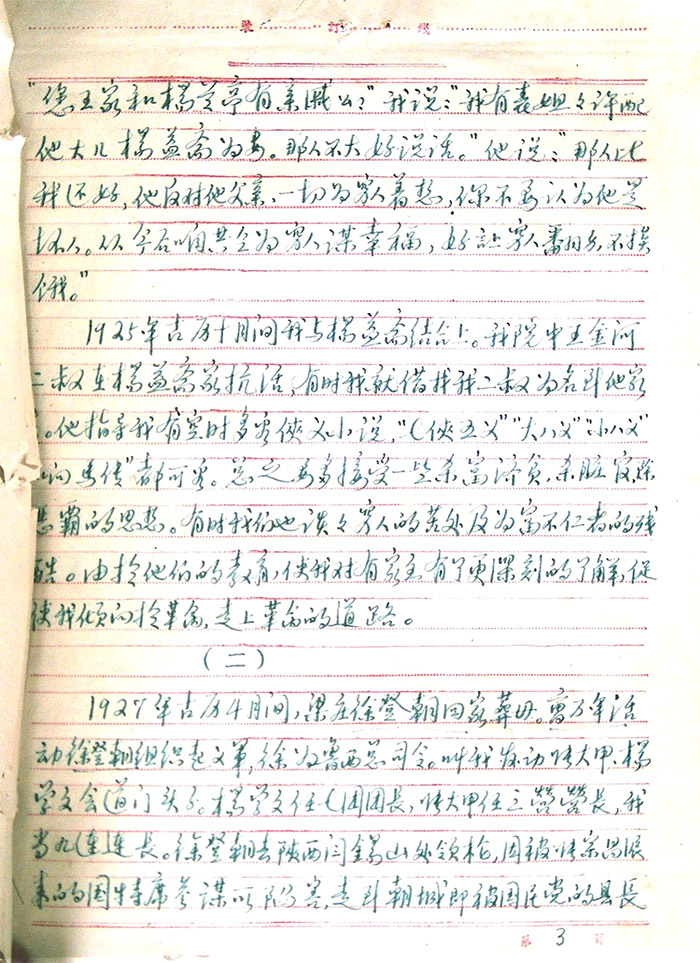 装 订 线
“您王家和杨芝亭有亲戚么？”我说：“我有表姐々许配
他大儿杨益斋为妻。那人不大好说话。”他说：“那人比
我还好，他反对他父亲，一切为穷人着想，你不要认为他是
坏人。从今后咱共仝为穷人谋幸福，好让穷人番个身，不挨
饿。”
1925年古历十月间我与杨益斋结合上。我院中王金河
二叔在杨益斋家抗活，有时我就借找我二叔为名到他家
。他指导我有空时多看侠义小说，“七侠五义”“大八义”“小八义”
响马传”都可看。总之要多接受一些杀富济贫，杀脏官除
恶霸的思想。有时我们也谈々穷人的苦处及为富不仁者的残
酷。由于他们的教育，使我对有家主有了更深刻的了解，促
使我倾向于革命，走上革命的道路。
（二）
1927年古历4月间，梁庄徐登朝回家葬母。万年活
动徐登朝组织起义军，徐为鲁西总司令。叫我发动大甲、杨
学文会道门头子。杨学文任七团团长，大甲任三营营长，我
当九连连长。徐登朝去陕西闫锡山处领枪，因被派
来的国特席参谋所陷害，走到朝城即被国民党的县长
第 3 页